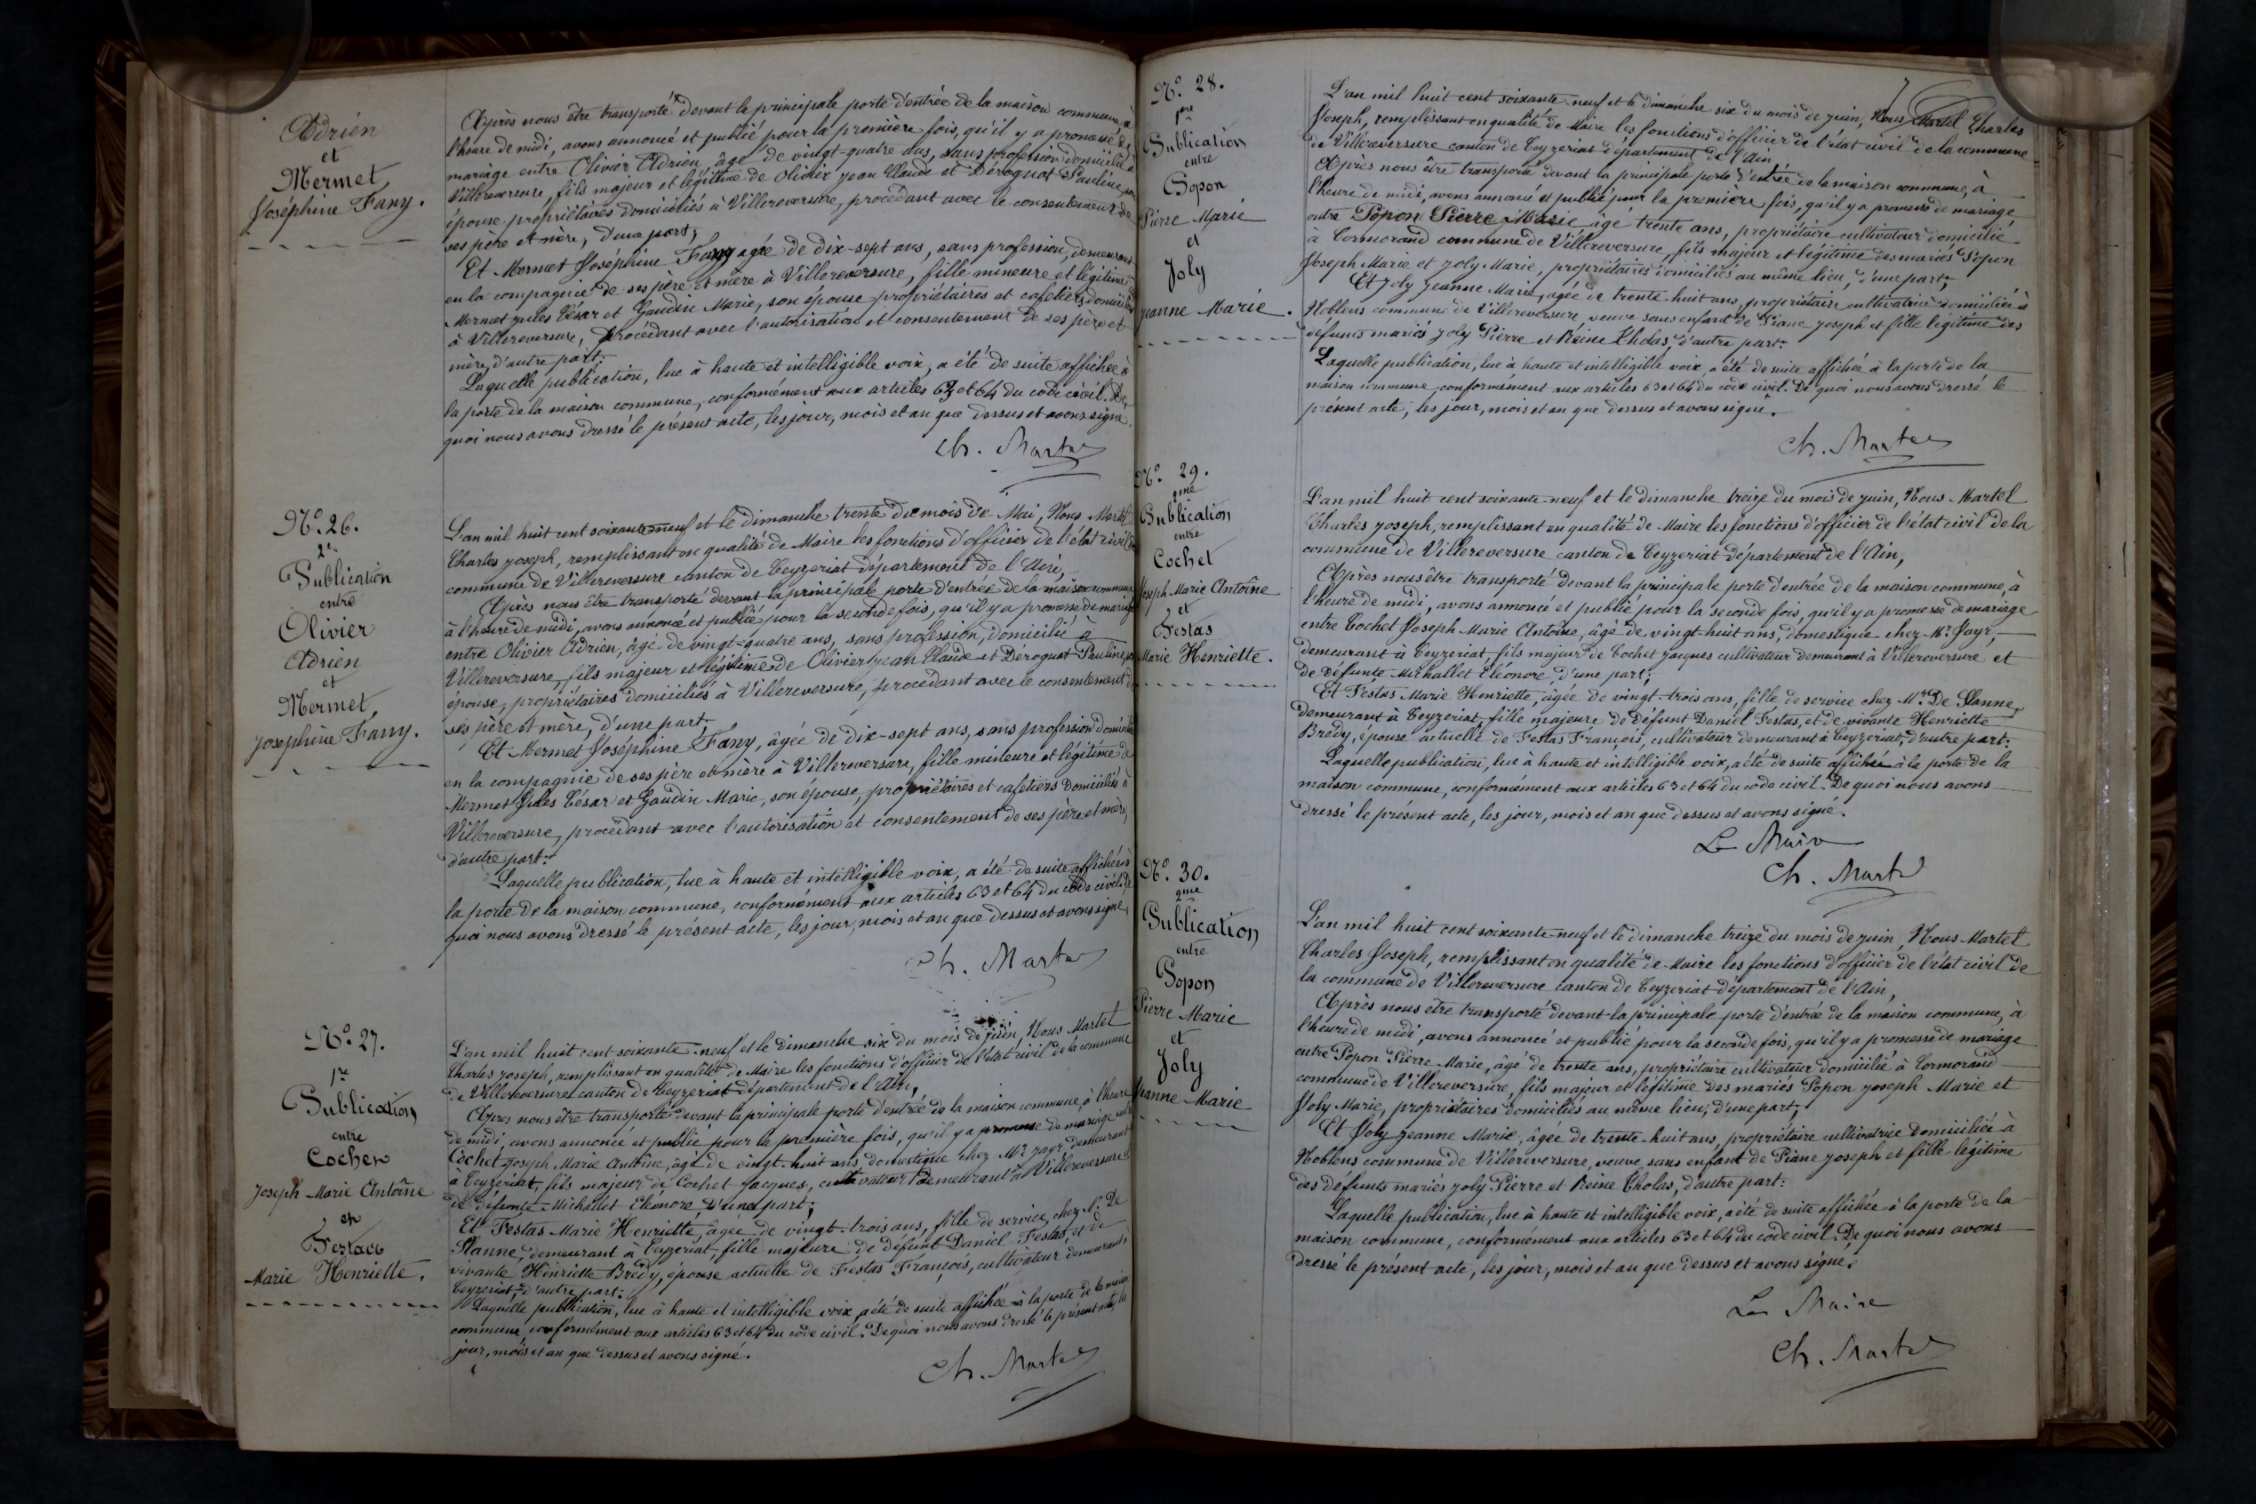 Adrien
et
Mermet
Joséphine Fany.
Après nous être transporté devant la principale porte d'entrée de la maison commune, à
l'heure de midi, avons annoncé et publié pour la première fois, qu'il y a promesse de
mariage entre Olivier Adrien, âgé de vingt-quatre ans, sans profession domicilié à
Villereversure, fils majeur et légitime de Olivier Jean Claude et Déroquat Pauline, son
épouse, propriétaires domiciliés à Villereversure, procédant avec le consentement de
ses père et mère, d'une part;
Et Mermet Joséphine Fany agée de dix-sept ans, sans profession, demeurant
en la compagnie de ses père et mère à Villereversure, fille mineure et légitime de
Mermet Jules César et Gaudin Marie, son épouse propriétaires et cafetiers, domiciliés
à Villereversure, procédant avec l'autorisation et consentement de ses père et
mère, d'autre part:
Laquelle publication, lue à haute et intelligible voix, a été de suite affichée à
la porte de la maison commune, conformément aux articles 63 et 64 du code civil. De
quoi nous avons dressé le présent acte, les jour, mois et an que dessus et avons signé.
Ch. Martel
N.º 26.
2e
Publication
entre
Olivier
Adrien
et
Mermet
Josephine Fany.
L'an mil huit cent soixante-neuf et le dimanche trente du mois de Mai, Nous Martel
Charles Joseph, remplissant en qualité de Maire les fonctions d'officier de l'état civil
commune de Villereversure canton de Ceyzeriat département de l'Ain,
Après nous être transporté devant la principale porte d'entrée de la maison commune
à l'heure de midi, avons annoncé et publié pour la seconde fois, qu'il y a promesse de mariage
entre Olivier Adrien, âgé de vingt-quatre ans, sans profession, domicilié à
Villereversure, fils majeur et légitime de Olivier Jean Claude et Déroquat Pauline, son
épouse, propriétaires domiciliés à Villereversure, procédant avec le consentement de
ses père et mère, d'une part,
Et Mermet Joséphine Fany, âgée de dix-sept ans, sans profession domiciliée
en la compagnie de ses père et mère à Villereversure, fille mineure et légitime de
Mermet Jules César et Gaudin Marie, son épouse, propriétaires et cafetiers domiciliés à
Villereversure, procédant avec l'autorisation et consentement de ses père et mère,
d'autre part:
Laquelle publication, lue à haute et intelligible voix, a été de suite affichée à
la porte de la maison commune, conformément aux articles 63 et 64 du code civil. De
quoi nous avons dressé le présent acte, les jour, mois et an que dessus et avons signé.
Ch. Martel
N.º 27.
1re
Publication
entre
Cochet
Joseph Marie Antoine
et
Festas
Marie Henriette.
L'an mil huit cent soixante-neuf et le dimanche six du mois de juin, Nous Martel
Charles Joseph, remplissant en qualité de Maire les fonctions d'officier de l'état civil de la commune
de Villereversure canton de Ceyzeriat département de l'Ain,
Après nous être transporté devant la principale porte d'entrée de la maison commune, à l'heure
de midi, avons annoncé et publié pour la première fois, qu'il y a promesse de mariage entre
Cochet Joseph Marie Antoine, âgé de vingt-huit ans domestique chez Mr Jayr, demeurant
à Ceyzériat, fils majeur de Cochet Jacques, cultivateur demeurant à Villereversure et
de défunte Michallet Eléonore, d'une part;
Et Festas Marie Henriette, âgée de vingt-trois ans, fille de service, chez M. De
Stanne, demeurant à Ceyzeriat, fille majeure de défunt Daniel Festas, et de
vivante Henriette Brédy, épouse actuelle de Festas François, cultivateur demeurant à
Ceyzeriat, d'autre part:
Laquelle publication, lue à haute et intelligible voix, a été de suite affichée à la porte de la maison
commune, conformément aux articles 63 et 64 du code civil. De quoi nous avons dressé le présent acte, les
jour, mois et an que dessus et avons signé.
Ch. Martel
N.º 28.
1re
Publication
entre
Popon
Pierre Marie
et
Joly
Jeanne Marie.
L'an mil huit cent soixante-neuf et le dimanche six du mois de juin, Nous Martel Charles
Joseph, remplissant en qualité de Maire les fonctions d'officier de l'état civil de la commune
de Villereversure canton de Ceyzeriat département de l'Ain,
Après nous être transporté devant la principale porte d'entrée de la maison commune, à
l'heure de midi, avons annoncé et publié pour la première fois, qu'il y a promesse de mariage
entre Popon Pierre Marie âgé trente ans, propriétaire cultivateur domicilié
à Cormorand commune de Villereversure, fils majeur et légitime des mariés Popon
Joseph Marie et Joly Marie, propriétaires domiciliés au même lieu, d'une part;
Et Joly Jeanne Marie, agée de trente-huit ans, propriétaire cultivatrice domiciliée à
Noblens commune de Villereversure veuve sans enfant de Piane Joseph et fille légitime des
défunts mariés Joly Pierre et Reine Cholas, d'autre part:
Laquelle publication, lue à haute et intelligible voix, a été de suite affichée à la porte de la
maison commune, conformément aux articles 63 et 64 du code civil. De quoi nous avons dressé le
présent acte, les jour, mois et an que dessus et avons signé.
Ch. Martel
N.º 29.
2me
Publication
entre
Cochet
Joseph Marie Antoine
et
Festas
Marie Henriette.
L'an mil huit cent soixante-neuf et le dimanche treize du mois de juin, Nous Martel
Charles Joseph, remplissant en qualité de Maire les fonctions d'officier de l'état civil de la
commune de Villereversure canton de Ceyzeriat département de l'Ain,
Après nous être transporté devant la principale porte d'entrée de la maison commune, à
l'heure de midi, avons annoncé et publié pour la seconde fois, qu'il y a promesse de mariage
entre Cochet Joseph Marie Antoine, âgé de vingt-huit ans, domestique chez Mr Jayr,
demeurant à Ceyzeriat, fils majeur de Cochet Jacques cultivateur demeurant à Villereversure et
de défunte Michallet Eléonore, d'une part;
Et Féstas Marie Henriette, âgée de vingt-trois ans, fille de service chez Mme De Stanne,
demeurant à Ceyzeriat, fille majeure de défunt Daniel Festas, et de vivante Henriette
Brédy, épouse actuelle de Festas François, cultivateur demeurant à Ceyzeriat, d'autre part:
Laquelle publication, lue à haute et intelligible voix, a été de suite affichée à la porte de la
maison commune, conformément aux articles 63 et 64 du code civil. De quoi nous avons
dressé le présent acte, les jour, mois et an que dessus et avons signé.
Le Maire
Ch. Martel
N.º 30.
2me
Publication
entre
Popon
Pierre Marie
et
Joly
Jeanne Marie
L'an mil huit cent soixante-neuf et le dimanche treize du mois de juin, Nous Martel
Charles Joseph, remplissant en qualité de Maire les fonctions d'officier de l'état civil de
la commune de Villereversure canton de Ceyzeriat département de l'Ain,
Après nous être transporté devant la principale porte d'entrée de la maison commune, à
l'heure de midi, avons annoncé et publié pour la seconde fois, qu'il y a promesse de mariage
entre Popon Pierre Marie, âgé de trente ans, propriétaire cultivateur domicilié à Cormorand
commune de Villereversure, fils majeur et légitime des mariés Popon Joseph Marie et
Joly Marie, propriétaires domiciliés au même lieu, d'une part,
Et Joly Jeanne Marie, âgée de trente-huit ans, propriétaire cultivatrice domiciliée à
Noblens commune de Villereversure, veuve, sans enfant de Piane Joseph et fille légitime
des défunts mariés Joly Pierre et Reine Cholas, d'autre part:
Laquelle publication, lue à haute et intelligible voix, a été de suite affichée à la porte de la
maison commune, conformément aux articles 63 et 64 du code civil. De quoi nous avons
dressé le présent acte, les jour, mois et an que dessus et avons signé.
Le Maire
Ch. Martel